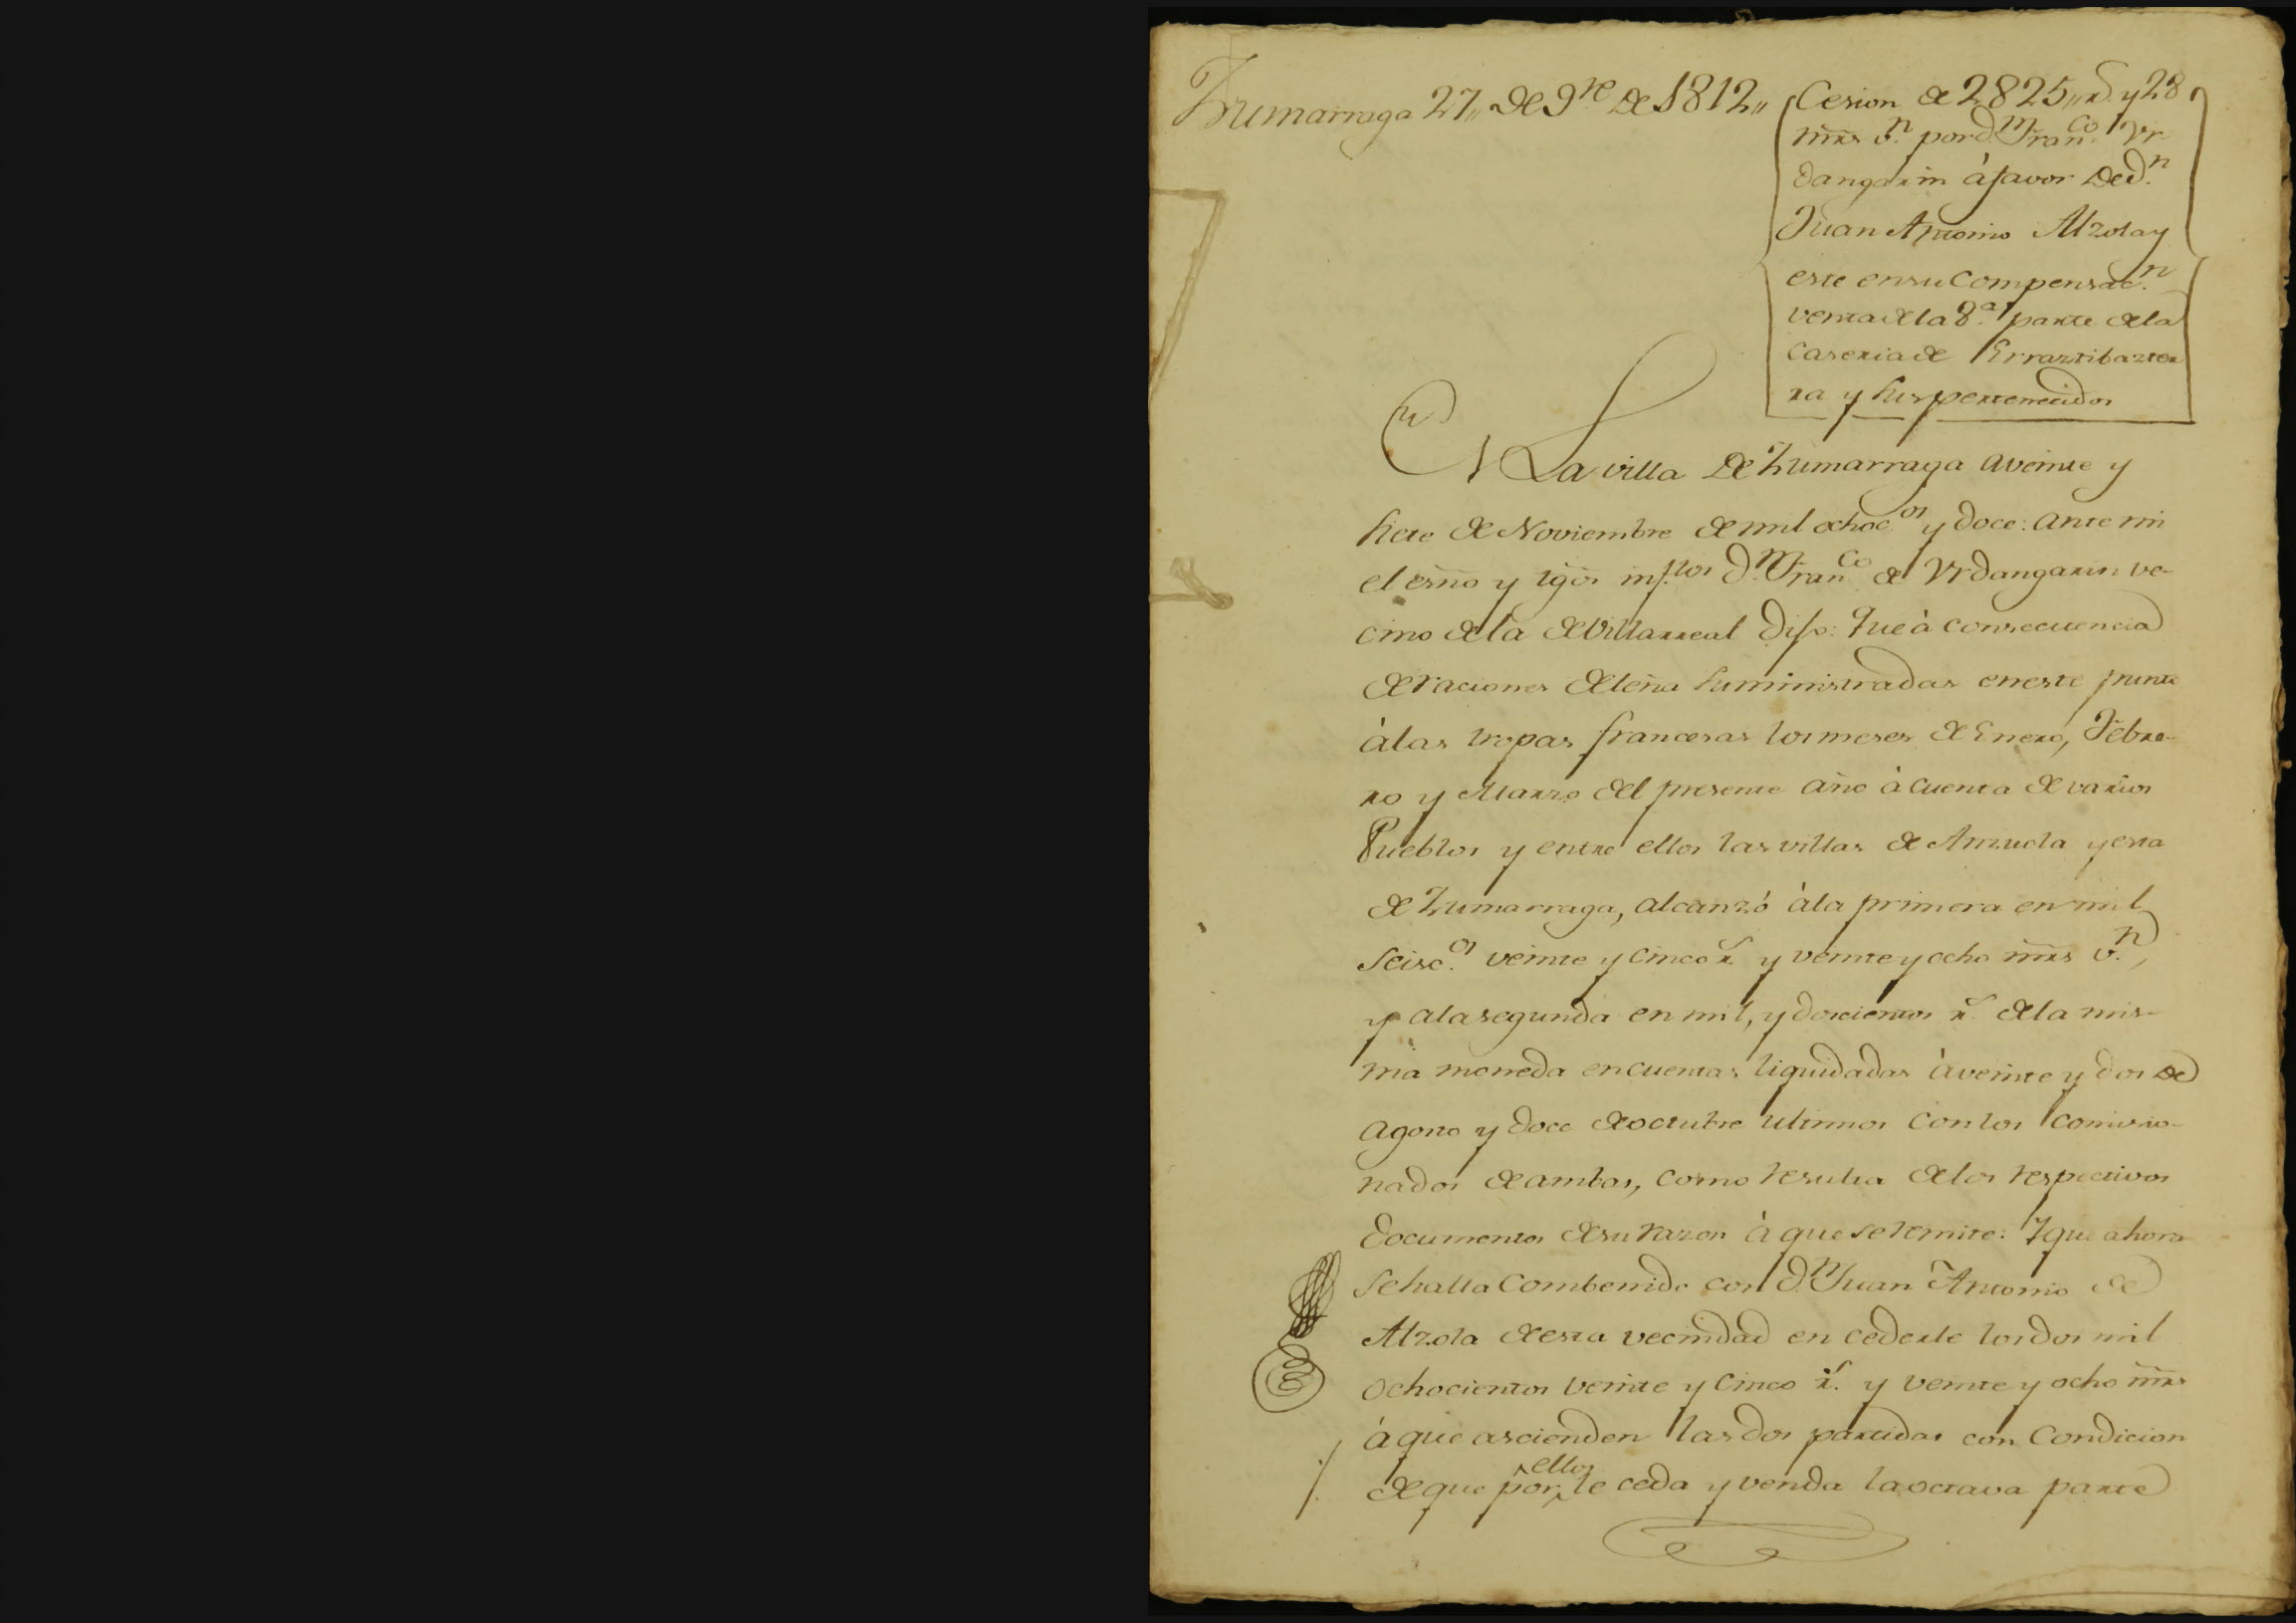 Zumarraga 27,, de 9re de 1812,,
Cesion de 2825,, rs. y 28
mrs vn. por Dn. Franco. Vr
dangarin à favor de Dn.
Juan Antonio Alzola y
este en su compensacn.
venta de la 8.a parte de la
caseria de Erraztibazter
ra y sus pertenecidos
En La villa de Zumarraga a veinte y
siete de Noviembre de mil ochocos y doce: ante mi
el esno y tgos infptos Dn. Franco de Vrdangarin ve-
cino de la de Villarreal Dijo: Que à consecuencia
de raciones de leña suministradas en este punto
à las tropas francesas los meses de Enero, Febre-
ro y Marzo del presente año à cuenta de varios
Pueblos y entre ellos las villas de Anzuola y esta
de Zumarraga, alcanzó à la primera en mil
seisc.os veinte y cinco rs. y veinte y ocho mrs vn.,
y a la segunda en mil, y doscientos rs. de la mis-
ma moneda en cuentas liquidadas à veinte y dos de
Agosto y doce de octubre ultimos con los comisio-
nados de ambas, como resulta de los respectivos
documentos de su razon à que se remite: Y que ahora
se halla combenido con Dn. Juan Antonio de
Alzola de esta vecindad en cederle los dos mil
ochocientos veinte y cinco rs. y veinte y ocho mrs
á que ascienden las dos partidas con condicion
ellos
de que por le ceda y venda la octava parte